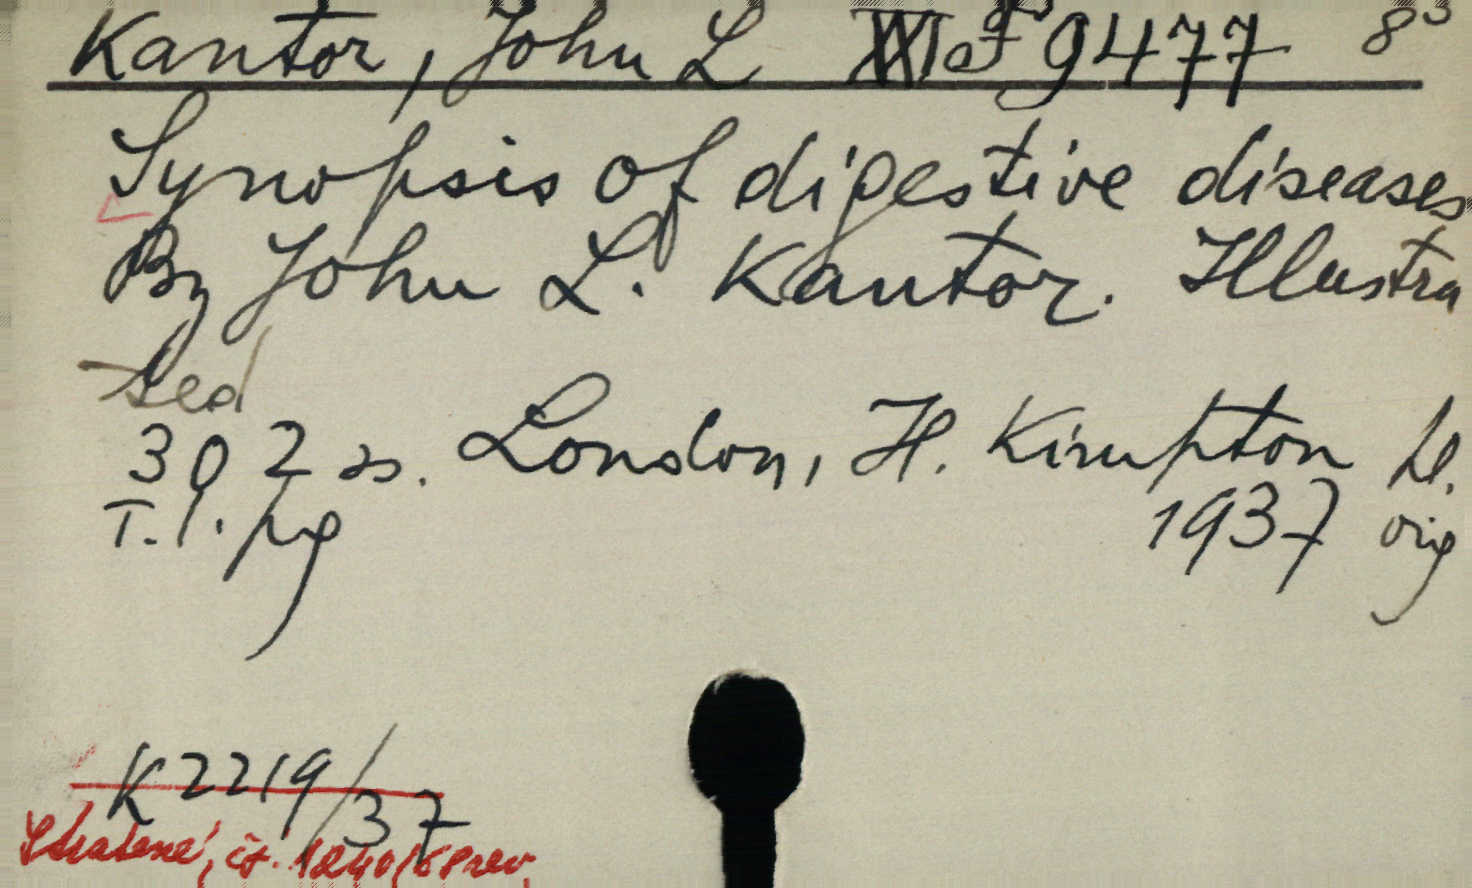 Kantor, John L 9477 8°
Synopsis of digestive diseases
By John L. Kantor. Illustra
ted
302 s. London, H. Kimpton
T. l. pg 1937 orig
K 2219/37
Stratené, čt. 1240/68 rev.